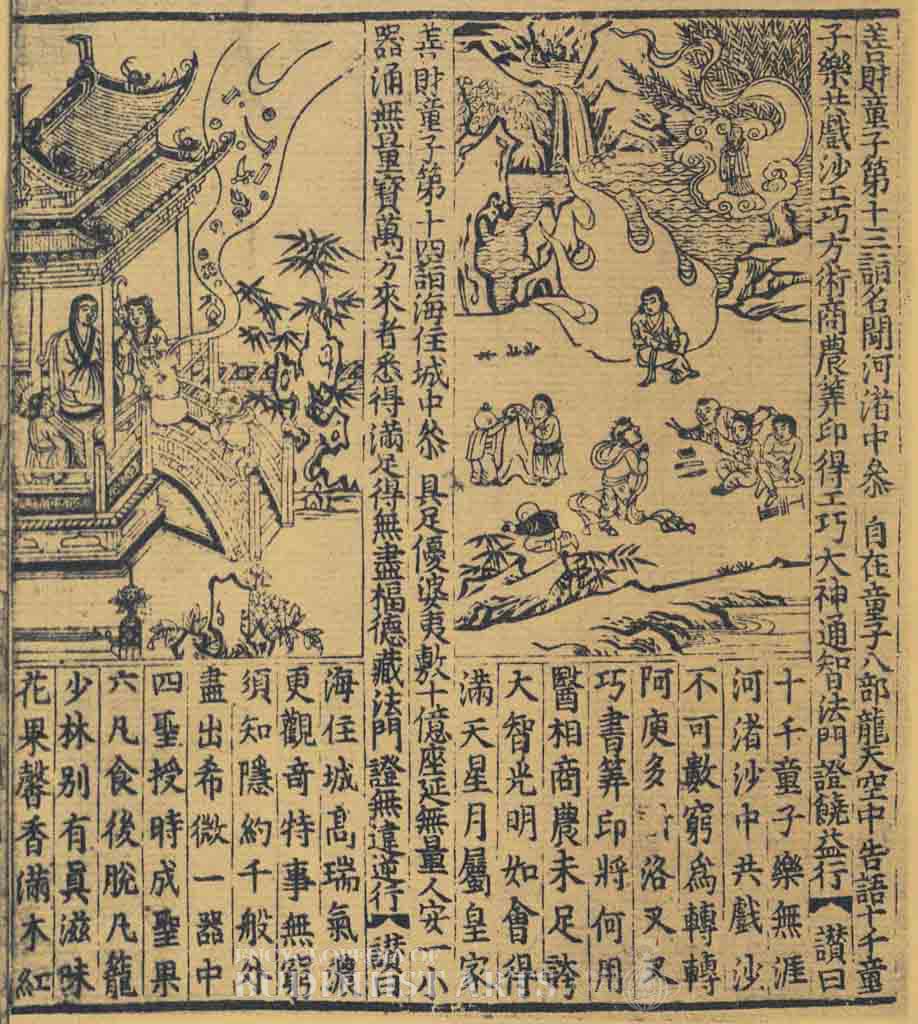 善財童子第十三詣名聞河渚中叅 自在童子八部龍天空中告語十千童
子樂共戲沙工巧方術商農筭印得工巧大神通智法門證饒益行【讃曰
十千童子樂無涯
河渚沙中共戲沙
不可數窮爲轉轉
阿庾多洛叉叉
巧書筭印將何用
醫相商農未足誇
大智光明如會得
滿天星月屬皇家
善財童子第十四詣海住城中叅 具足優婆夷敷十億座延無量人安一小
器涌無量寳萬方來者悉得滿足得無盡福德藏法門證無違逆行【讃曰
海住城高瑞氣濃
更觀奇特事無窮
須知隱約千般
盡出希微一器中
四聖授時成聖果
六凡食後脫凡籠
少林別有眞滋味
花果馨香滿木紅
ENCYCLOPEDIA OF
BUDDHIST ARTS